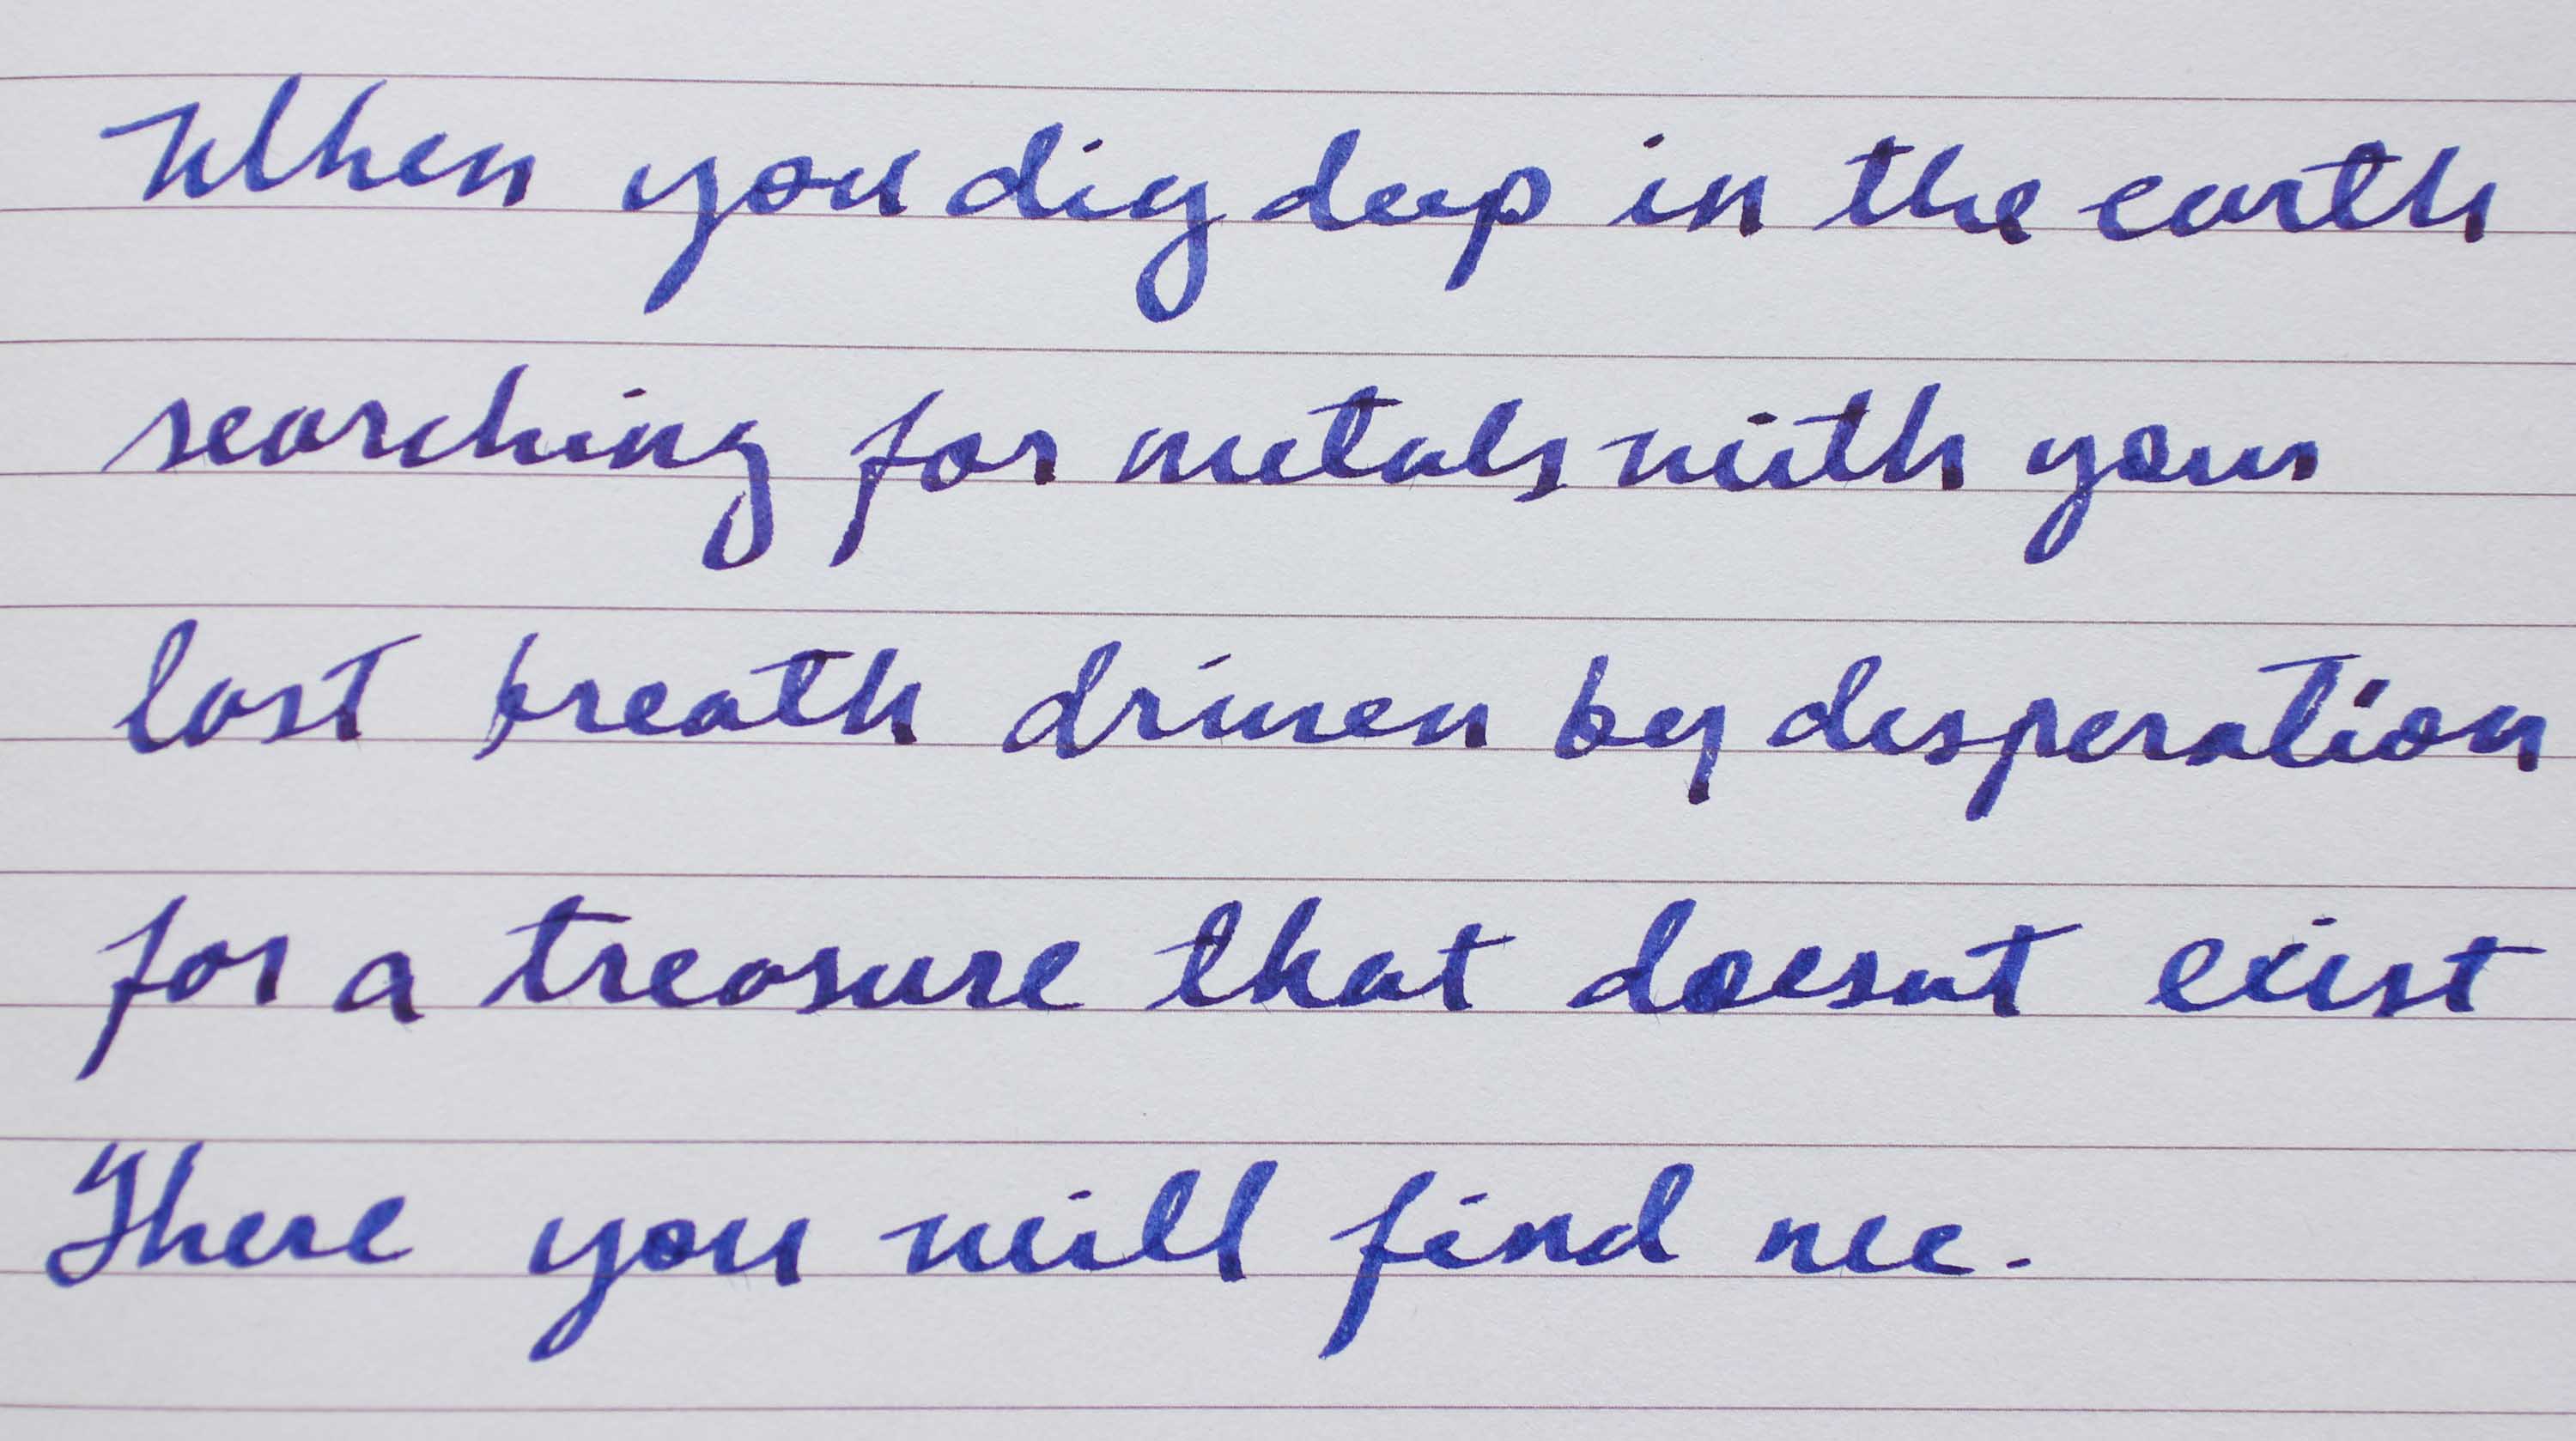 When you dig deep in the earth
searching for metals with your
last breath driven by desperation
for a treasure that doesnt exist
There you will find me.